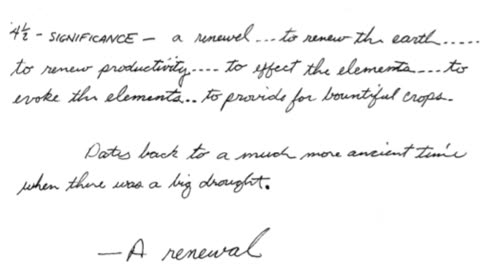 4½ - SIGNIFICANCE — a renewel....to renew the earth.....
to renew productivity.... to effect the elements....to
evoke the elements... to provide for bountiful crops.
Dates back to a much more ancient time
when there was a big drought.
— A renewal